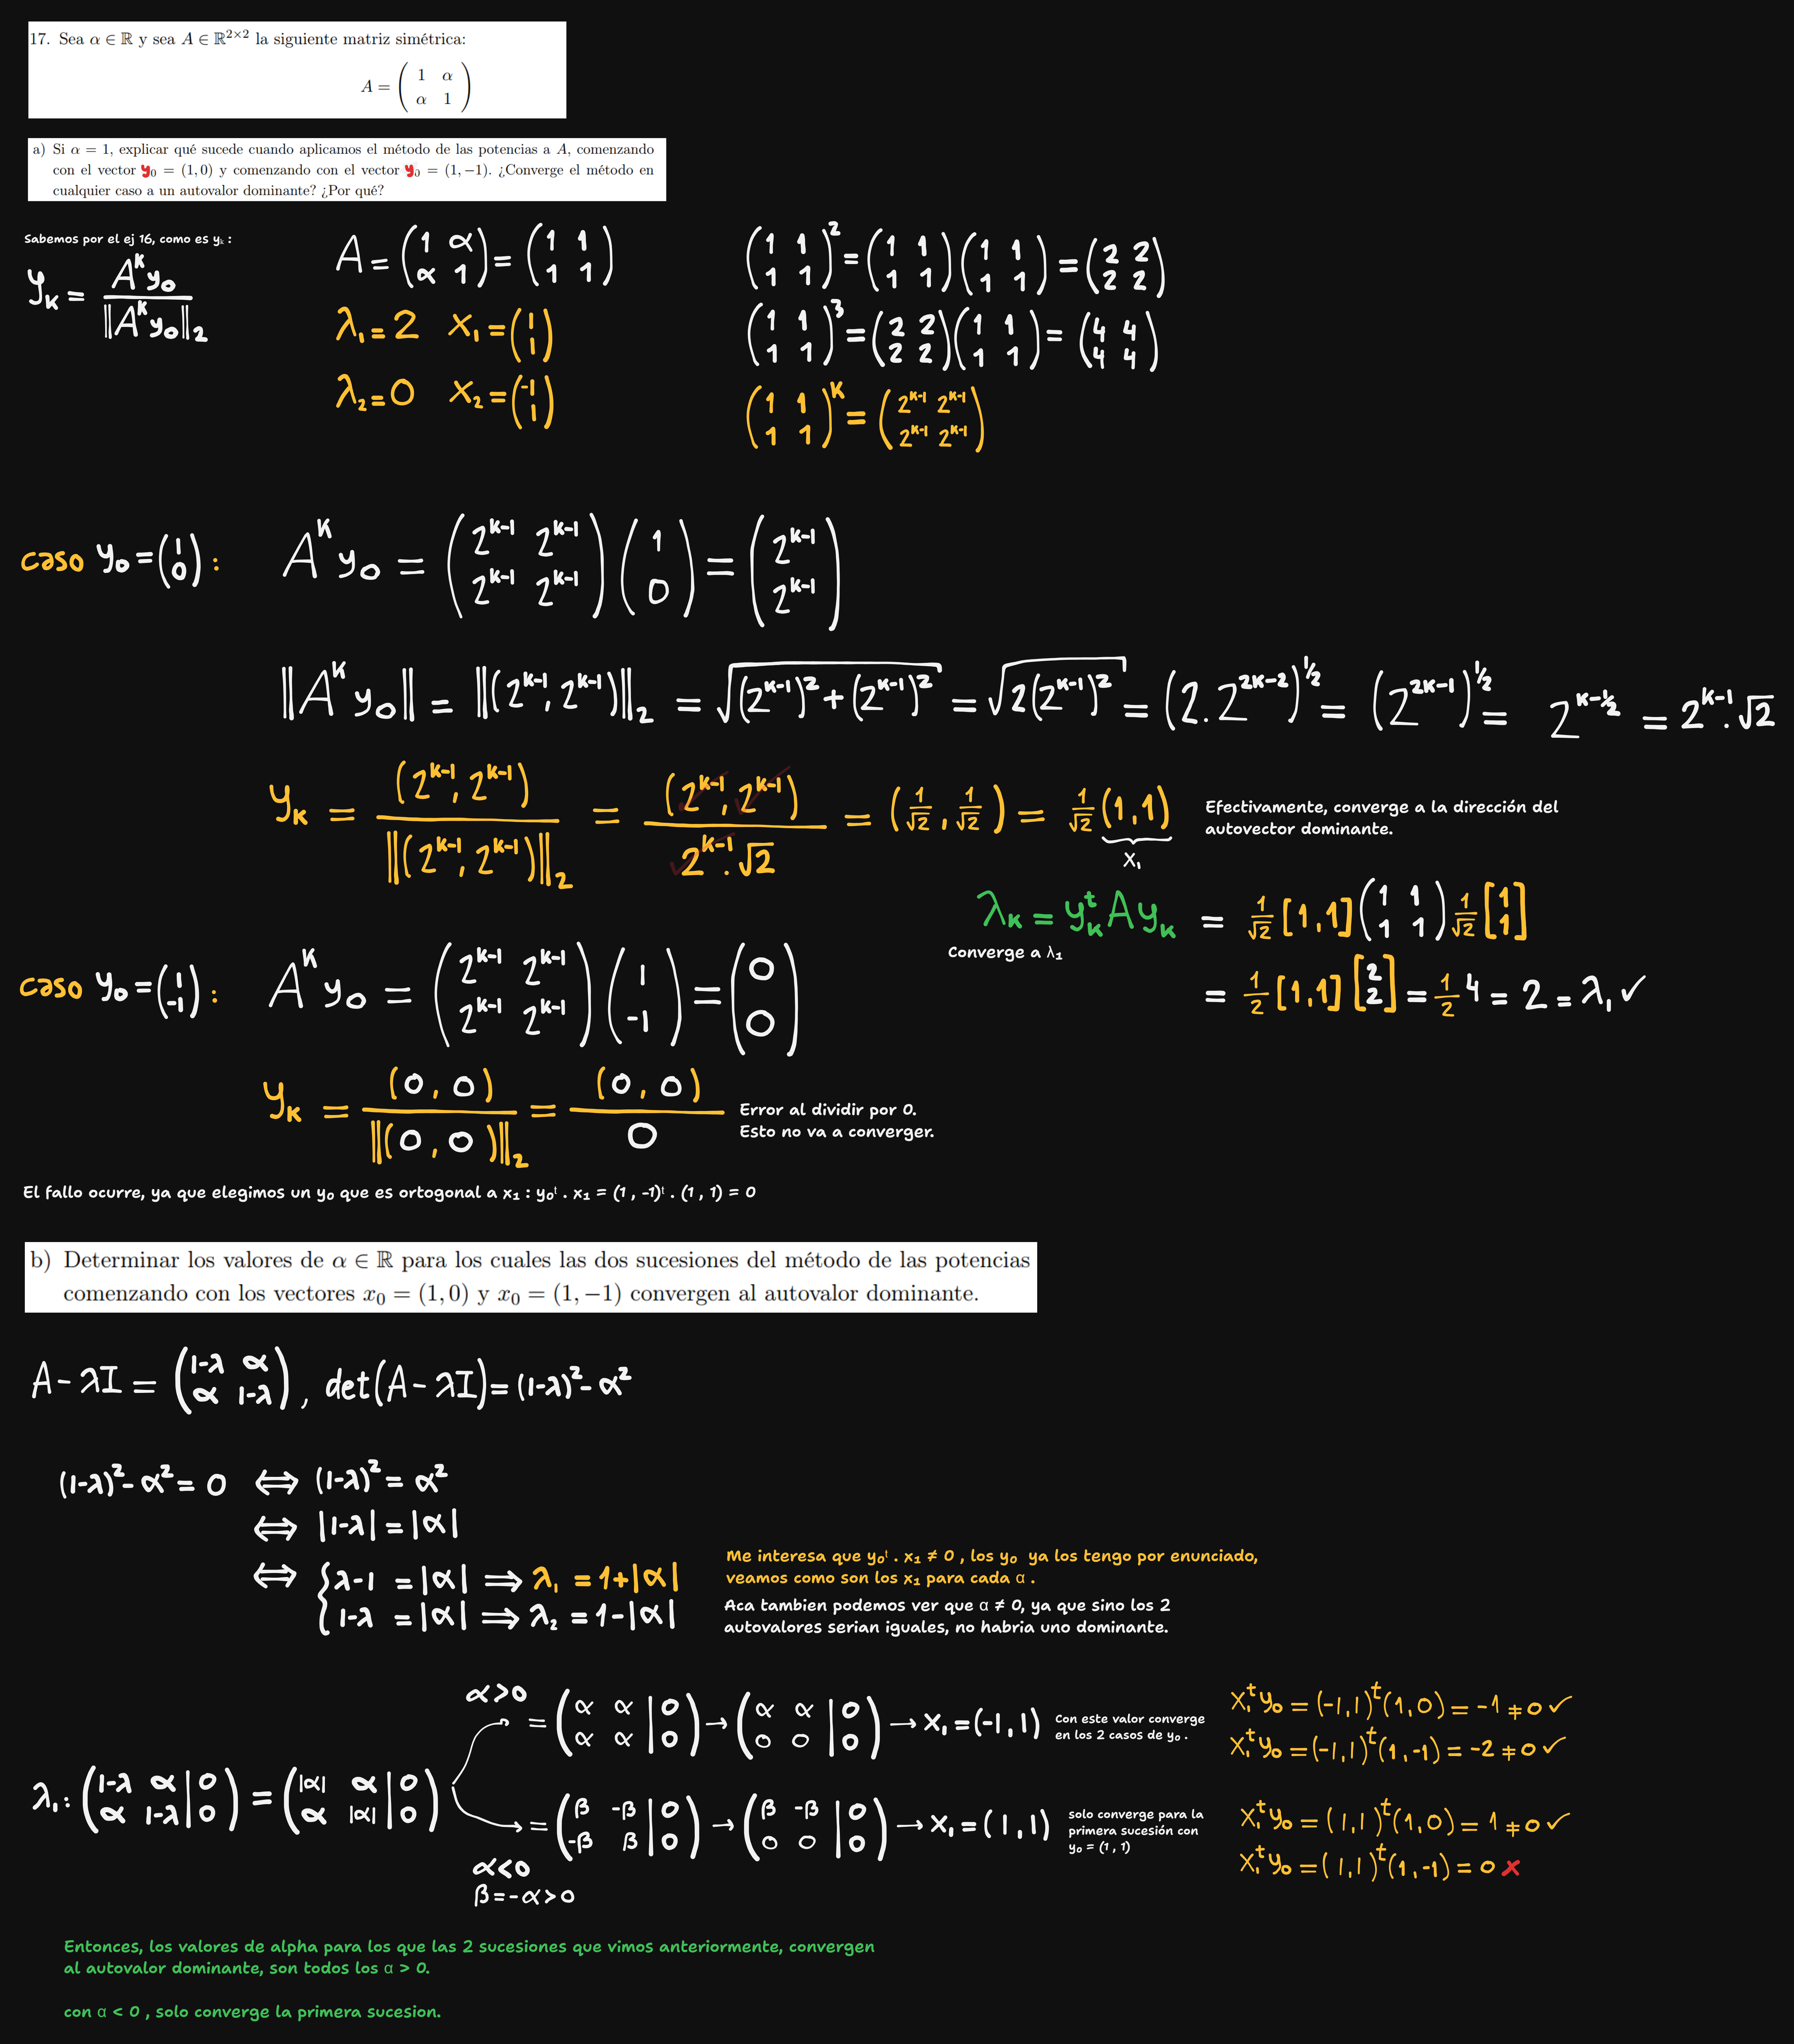 17. Sea α ∈ ℝ y sea A ∈ ℝ^{2×2} la siguiente matriz simétrica:
A = ( 1 α ; α 1 )
a) Si α = 1, explicar qué sucede cuando aplicamos el método de las potencias a A, comenzando
con el vector y₀ = (1, 0) y comenzando con el vector y₀ = (1, −1). ¿Converge el método en
cualquier caso a un autovalor dominante? ¿Por qué?
Sabemos por el ej 16, como es yₖ :
yₖ = A^k y₀ / ||A^k y₀||₂
A = ( 1 α ; α 1 ) = ( 1 1 ; 1 1 )
λ₁ = 2 x₁ = ( 1 ; 1 )
λ₂ = 0 x₂ = ( -1 ; 1 )
( 1 1 ; 1 1 )² = ( 1 1 ; 1 1 ) ( 1 1 ; 1 1 ) = ( 2 2 ; 2 2 )
( 1 1 ; 1 1 )³ = ( 2 2 ; 2 2 ) ( 1 1 ; 1 1 ) = ( 4 4 ; 4 4 )
( 1 1 ; 1 1 )^k = ( 2^{k-1} 2^{k-1} ; 2^{k-1} 2^{k-1} )
caso y₀ = ( 1 ; 0 ) : A^k y₀ = ( 2^{k-1} 2^{k-1} ; 2^{k-1} 2^{k-1} ) ( 1 ; 0 ) = ( 2^{k-1} ; 2^{k-1} )
||A^k y₀|| = ||(2^{k-1}, 2^{k-1})||₂ = √((2^{k-1})² + (2^{k-1})²) = √(2(2^{k-1})²) = (2 . 2^{2k-2})^{1/2} = (2^{2k-1})^{1/2} = 2^{k-1/2} = 2^{k-1} . √2
yₖ = (2^{k-1}, 2^{k-1}) / ||(2^{k-1}, 2^{k-1})||₂ = (2^{k-1}, 2^{k-1}) / 2^{k-1} . √2 = (1/√2, 1/√2) = 1/√2 (1,1)
x₁
Efectivamente, converge a la dirección del
autovector dominante.
λₖ = yₖ^t A yₖ = 1/√2 [1,1] ( 1 1 ; 1 1 ) 1/√2 [ 1 ; 1 ]
Converge a λ₁
= 1/2 [1,1] [ 2 ; 2 ] = 1/2 4 = 2 = λ₁ ✓
caso y₀ = ( 1 ; -1 ) : A^k y₀ = ( 2^{k-1} 2^{k-1} ; 2^{k-1} 2^{k-1} ) ( 1 ; -1 ) = ( 0 ; 0 )
yₖ = (0, 0) / ||(0, 0)||₂ = (0, 0) / 0
Error al dividir por 0.
Esto no va a converger.
El fallo ocurre, ya que elegimos un y₀ que es ortogonal a x₁ : y₀ᵗ . x₁ = (1 , -1)ᵗ . (1 , 1) = 0
b) Determinar los valores de α ∈ ℝ para los cuales las dos sucesiones del método de las potencias
comenzando con los vectores x₀ = (1, 0) y x₀ = (1, −1) convergen al autovalor dominante.
A - λI = ( 1-λ α ; α 1-λ ) , det(A - λI) = (1-λ)² - α²
(1-λ)² - α² = 0 ⟺ (1-λ)² = α²
⟺ |1-λ| = |α|
⟺ { λ-1 = |α| ⟹ λ₁ = 1+|α|
1-λ = |α| ⟹ λ₂ = 1-|α|
Me interesa que y₀ᵗ . x₁ ≠ 0 , los y₀ ya los tengo por enunciado,
veamos como son los x₁ para cada α .
Aca tambien podemos ver que α ≠ 0, ya que sino los 2
autovalores serian iguales, no habria uno dominante.
λ₁: ( 1-λ α | 0 ; α 1-λ | 0 ) = ( |α| α | 0 ; α |α| | 0 )
α>0
= ( α α | 0 ; α α | 0 ) → ( α α | 0 ; 0 0 | 0 ) → x₁ = (-1, 1)
Con este valor converge
en los 2 casos de y₀ .
x₁ᵗ y₀ = (-1, 1)ᵗ (1, 0) = -1 ≠ 0 ✓
x₁ᵗ y₀ = (-1, 1)ᵗ (1, -1) = -2 ≠ 0 ✓
= ( β -β | 0 ; -β β | 0 ) → ( β -β | 0 ; 0 0 | 0 ) → x₁ = ( 1, 1)
α<0
β = -α > 0
solo converge para la
primera sucesión con
y₀ = (1 , 1)
x₁ᵗ y₀ = ( 1, 1 )ᵗ (1, 0) = 1 ≠ 0 ✓
x₁ᵗ y₀ = ( 1, 1 )ᵗ (1, -1) = 0 ✗
Entonces, los valores de alpha para los que las 2 sucesiones que vimos anteriormente, convergen
al autovalor dominante, son todos los α > 0.
con α < 0 , solo converge la primera sucesion.